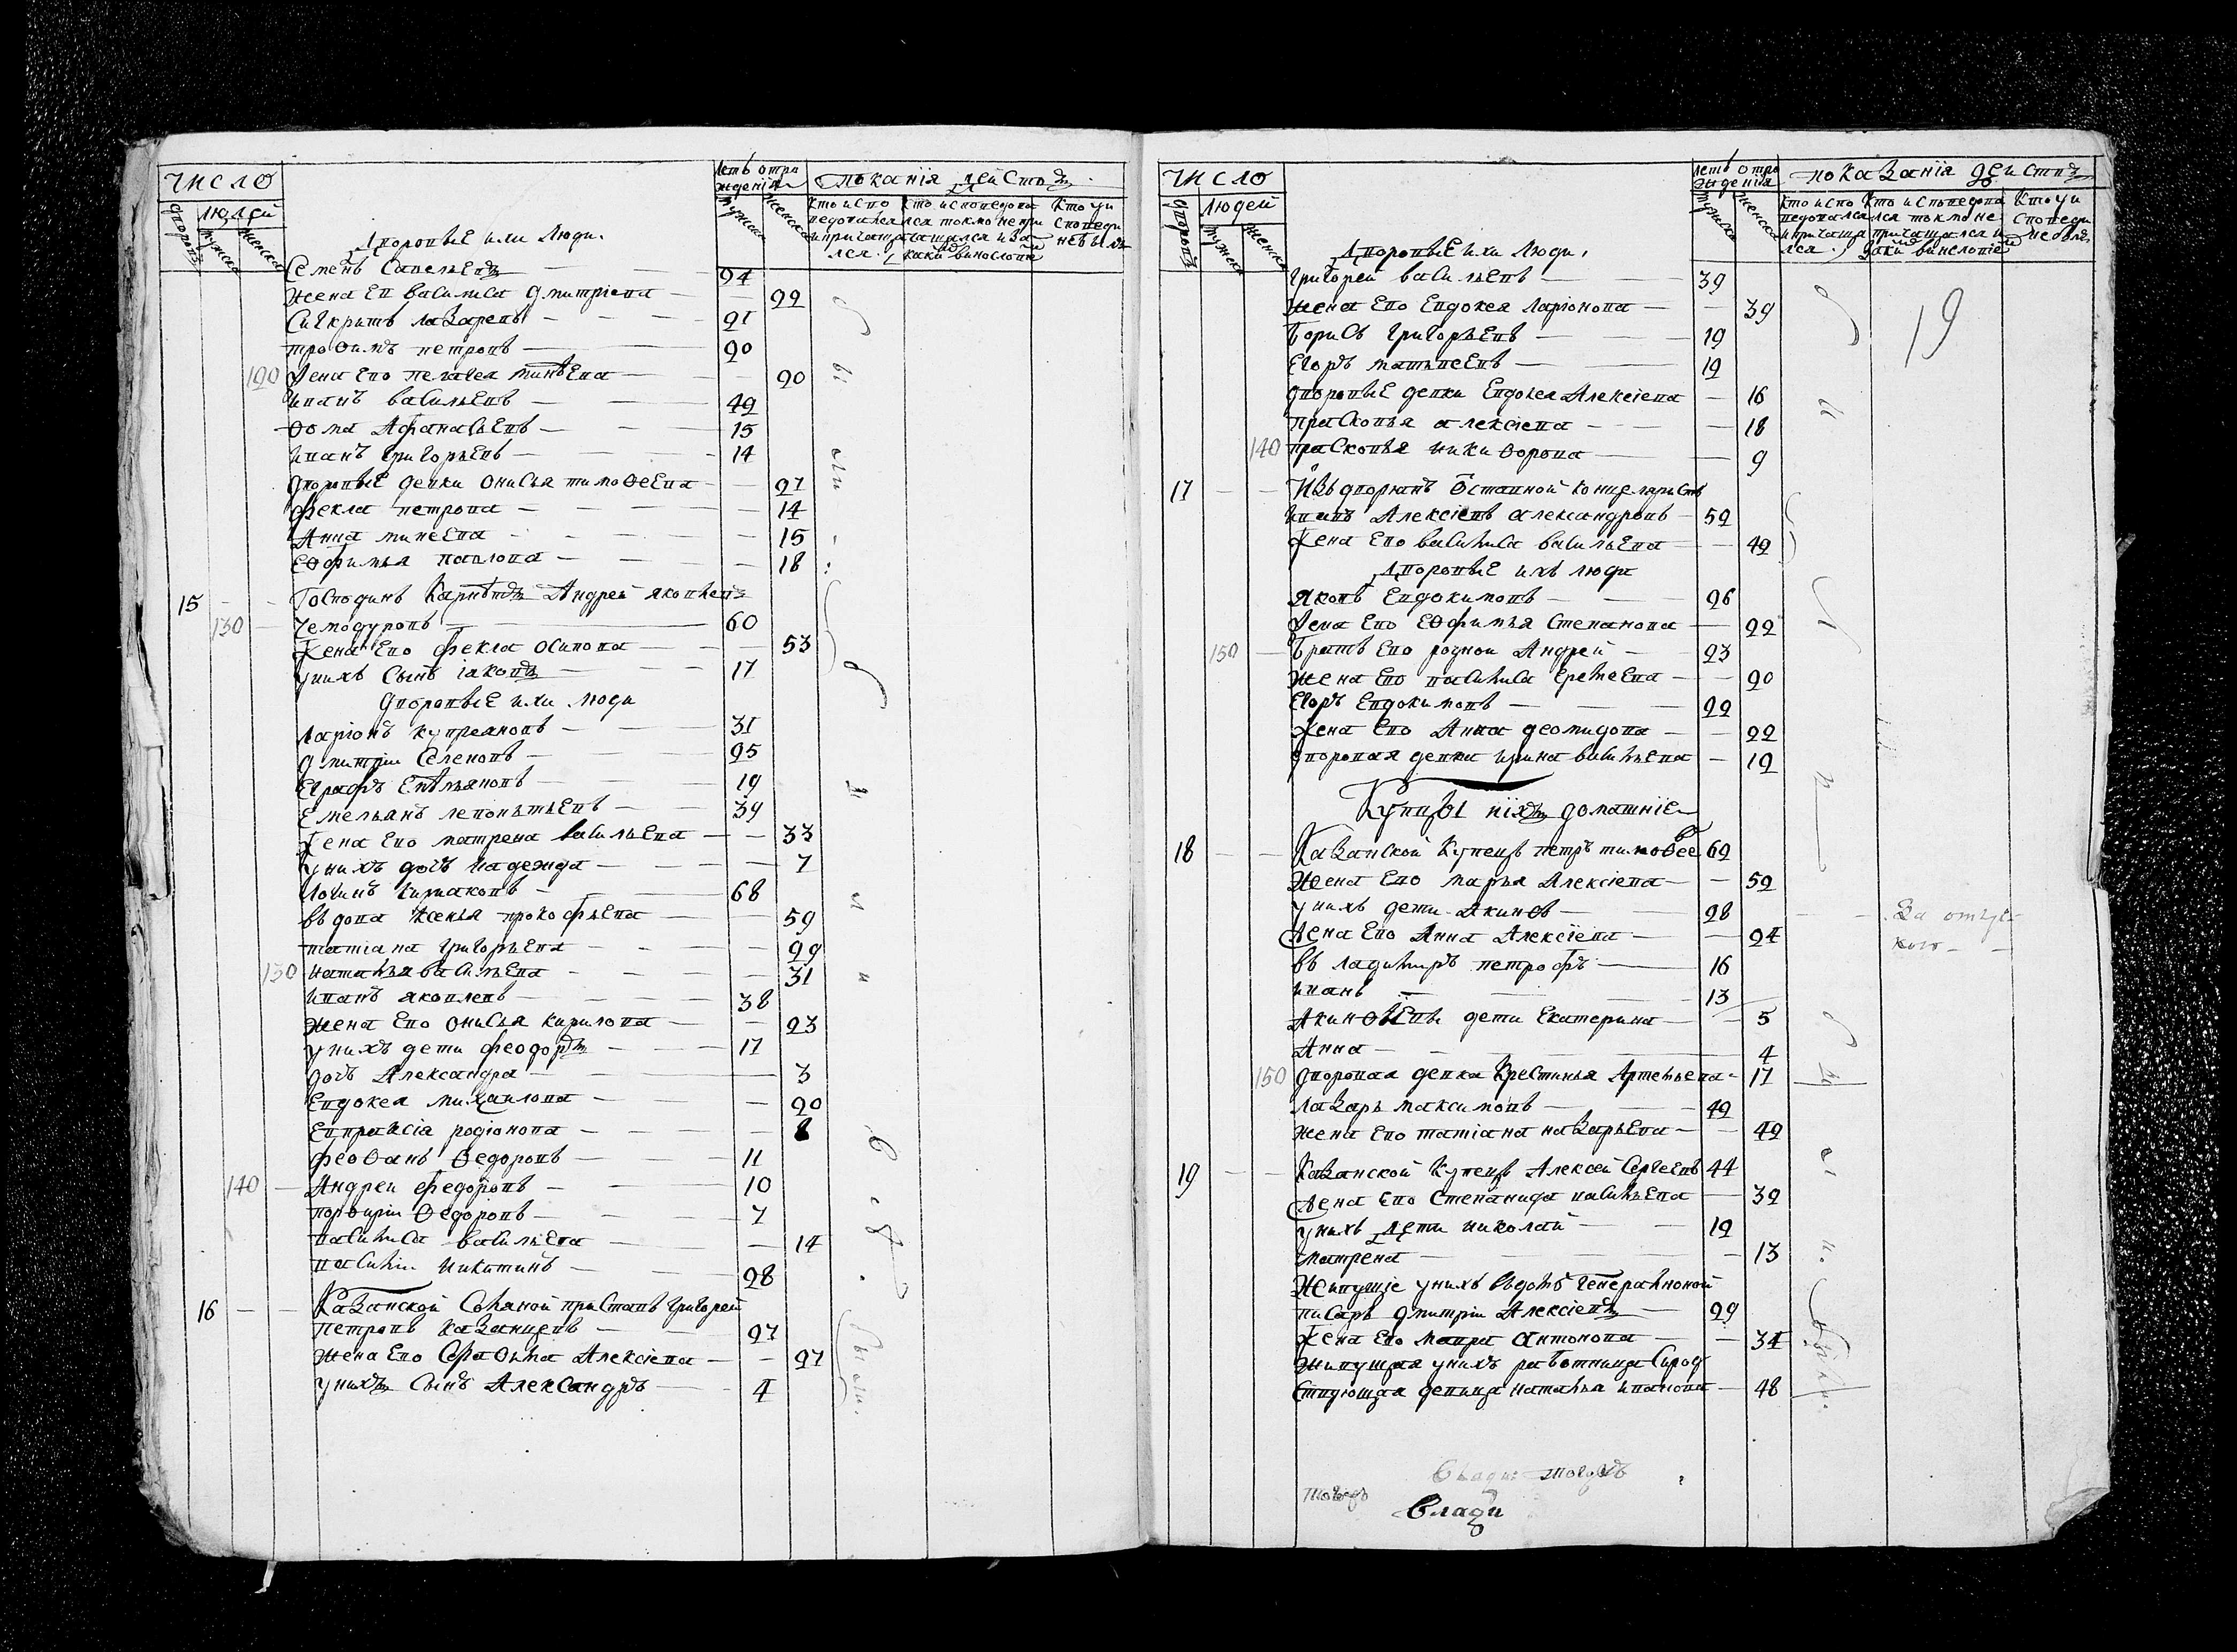 число
людей
дворовъ
мужска
женска
летъ отро
ждения
мужска
женска
показанiя действъ
кто и спо
ведовался
и причаща
лся
кто исповедова
лся токмо не при
чащался и за
каким винословием
кто и и
споведи
не былъ
Дворовые ихъ люди.
Семенъ Савельевъ — 24
жена ево василиса дмитрiева — 22
лазаревъ — 21
трофимъ петровъ — 20
120 жена ево пелагея — 20
иванъ васильевъ — 42
Фома Афанасьевъ — 15
иванъ григорьевъ — 14
дворовые девки онисья тимофеева — 27
фекла петрова — 14
Анна минеева — 15
ефимья павлова — 18
15 Господинъ Андрей яковлевъ
130 Чемодуровъ — 60
жена ево фекла осипова — 53
у нихъ сынъ iаковъ — 17
дворовые ихъ люди
ларiонъ купреяновъ — 31
дмитрiи Семеновъ — 25
Еграфъ Емельяновъ — 19
Емельянъ леонтьевъ — 39
жена ево матрена васильева — 33
у нихъ дочь надежда — 7
логинъ кирмаковъ — 68
вдова ксенья прокофьева — 59
татiана григорьева — 29
130 наталья васильева — 31
иванъ яковлевъ — 38
жена ево онисья кирилова — 23
у нихъ дети феодоръ — 17
дочь Александра — 3
Евдокея михаилова — 20
Евпраксiа родiонова — 8
феофанъ Федоровъ — 11
140 Андреи федоровъ — 10
порфирiи Федоровъ — 7
василиса васильева — 14
василiи никитинъ — 28
16 Казанской соляной приставъ григорей
петровъ казанцевъ — 27
жена ево Серафима Алексiева — 27
у нихъ сынъ Александръ — 4
были
число
людей
дворовъ
мужска
женска
летъ отро
ждения
мужска
женска
показанiя действъ
кто и спо
ведовался
и причаща
лся
кто исповедова
лся токмо не
причащался и
каким винословием
кто и и
споведи
не былъ
Дворовые ихъ люди.
19
григорей васильевъ — 39
жена ево Евдокея ларiонова — 39
борисъ григорьевъ — 19
Егоръ матвеевъ — 12
дворовые девки Евдокея Алексiева — 16
прасковья алексiева — 18
140 прасковья никифорова — 9
17 Изъ дворянъ отставной концеляристъ
иванъ Алексiевъ александровъ — 52
жена ево василиса васильева — 42
Дворовые ихъ люди
яковъ Евдокимовъ — 26
жена ево ефимья Степанова — 22
150 братъ ево родной Андрей — 23
жена ево василиса еремеева — 20
егоръ Евдокимовъ — 22
жена ево Анна деомидова — 22
дворовая девка ирина васильева — 12
Купцы и ихъ домашнiе
18 Казанской купецъ петръ тимофеевъ 62
жена ево марья Алексiева — 52
у нихъ дети Акинфъ — 28
за отлуч
кою
жена ево Анна Алексiева — 24
владимиръ петрофъ — 16
иванъ — 13
Акинфiевы дети Екатерина — 5
Анна — 4
150 дворовая девка Крестинья Артемьева — 17
лазарь максимовъ — 42
жена ево татiана назарьева — 42
19 Казанской купецъ Алексей Сергеевъ 44
жена ево Степанида васильева — 32
у нихъ дети николай — 12
матрена — 13
живущiе у нихъ въ доме генеральной
писарь дмитрiи Алексiевъ — 29
жена ево мавра антонова — 34
живущая у нихъ работница сирод
ствующая девица наталья иванова — 48
были.
влади